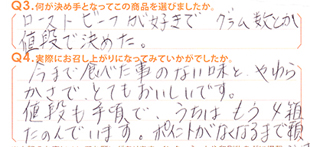 Q3.何が決め手となってこの商品を選びましたか。
ローストビーフが好きで グラム数とか
値段で決めた。
Q4.実際にお召し上がりになってみていかがでしたか。
今まで食べた事のない味と、やわら
かさで、とてもおいしいです。
値段も手頃で、うちはもう4箱
たのんでいます。ポイントがなくなるまで頼